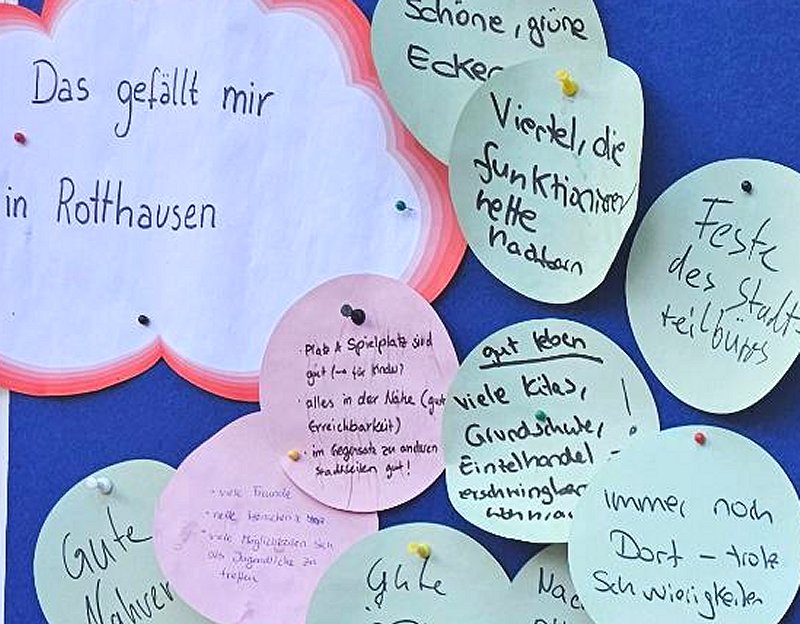 Das gefällt mir
in Rotthausen
Schöne, grüne
Ecken
Viertel, die
funktionieren
nette
Nachbarn
Feste
des Stadt-
teilbüros
• Platz & Spielplatz sind
gut (→ für Kinder?
• alles in der Nähe (gute
Erreichbarkeit)
• im Gegensatz zu anderen
Stadtteilen gut!
gut leben
viele Kitas,
Grundschule,
Einzelhandel
erschwingbar
immer noch
Dorf – trotz
Schwierigkeiten
• viele Freunde
• nette Menschen
• viele Möglichkeiten sich
als Jugendliche zu
treffen
Gute
Nahver
Gute